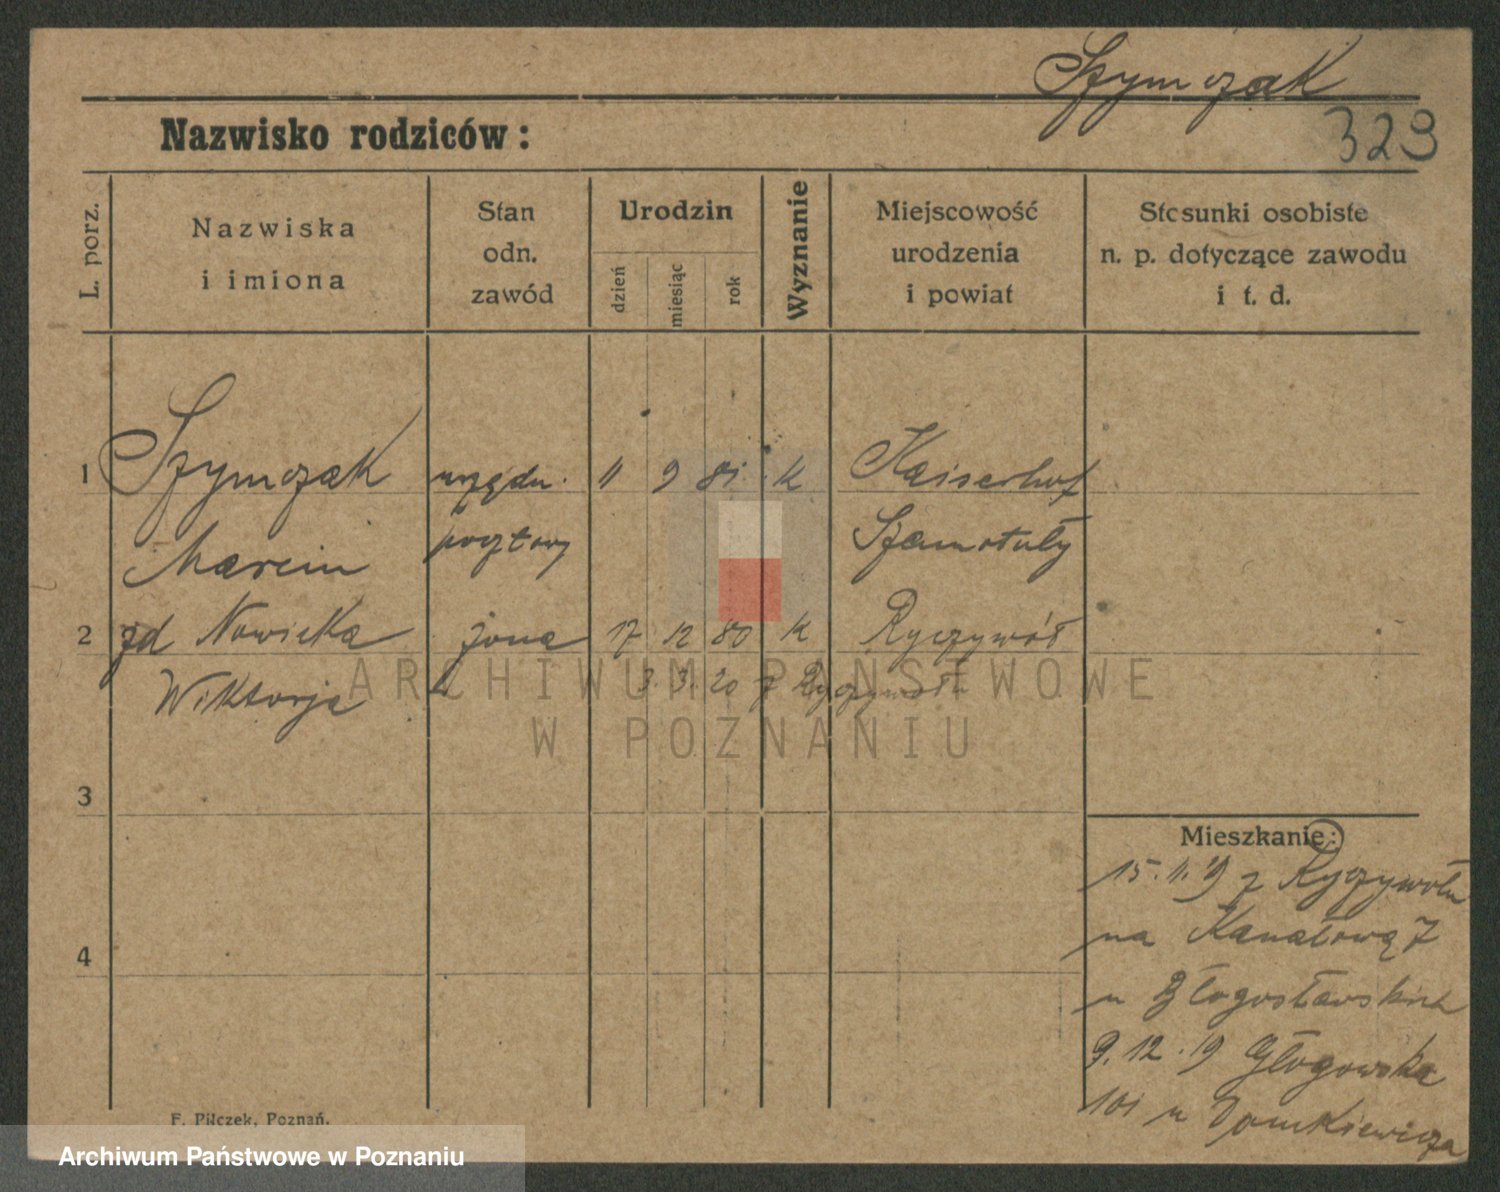 Szymczak
329
Nazwisko rodziców:
L. porz.
Nazwiska
i imiona
Stan
odn.
zawód
Urodzin
dzień
miesiąc
rok
Wyznanie
Miejscowość
urodzenia
i powiat
Stosunki osobiste
n. p. dotyczące zawodu
i t. d.
1 Szymczak urzędn. 11 9 81 K Kaiserhof
Marcin pocztowy Szamotuły
2 zd Nowicka żona 17 12 80 K Ryczywół
Wiktorja 3. 3. 20 z Ryczywołu
ARCHIWUM PAŃSTWOWE
W POZNANIU
3
4
Mieszkanie:
15.11.19 z Ryczywołu
na Kanałową 7
u Błogosławskich
9.12.19 Głogowska
101 u Domkiewicza
F. Pilczek, Poznań.
Archiwum Państwowe w Poznaniu